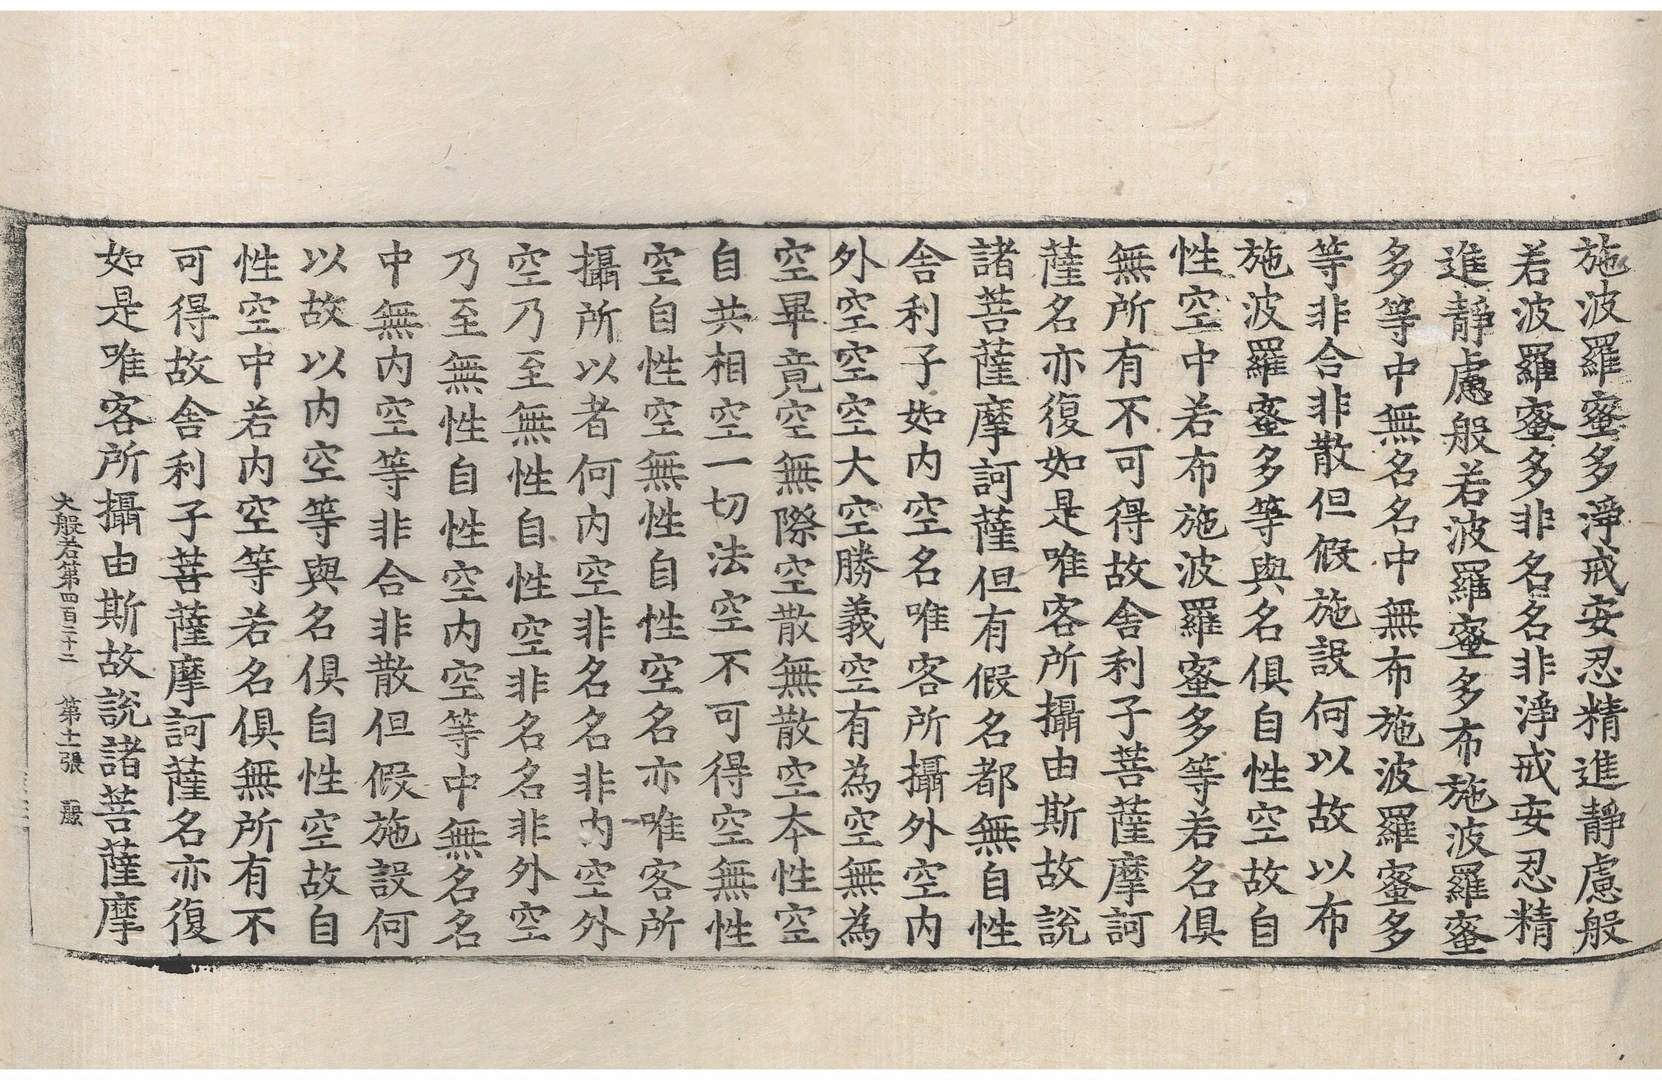 施波羅蜜多淨戒安忍精進靜慮般
若波羅蜜多非名名非淨戒安忍精
進靜慮般若波羅蜜多布施波羅蜜
多等中無名名中無布施波羅蜜多
等非合非散但假施設何以故以布
施波羅蜜多等與名俱自性空故自
性空中若布施波羅蜜多等若名俱
無所有不可得故舍利子菩薩摩訶
薩名亦復如是唯客所攝由斯故說
諸菩薩摩訶薩但有假名都無自性
舍利子如內空名唯客所攝外空內
外空空空大空勝義空有為空無為
空畢竟空無際空散無散空本性空
自共相空一切法空不可得空無性
空自性空無性自性空名亦唯客所
攝所以者何內空非名名非內空外
空乃至無性自性空非名名非外空
乃至無性自性空內空等中無名名
中無內空等非合非散但假施設何
以故以內空等與名俱自性空故自
性空中若內空等若名俱無所有不
可得故舍利子菩薩摩訶薩名亦復
如是唯客所攝由斯故說諸菩薩摩
大般若第四百二十二 第十一張 嚴